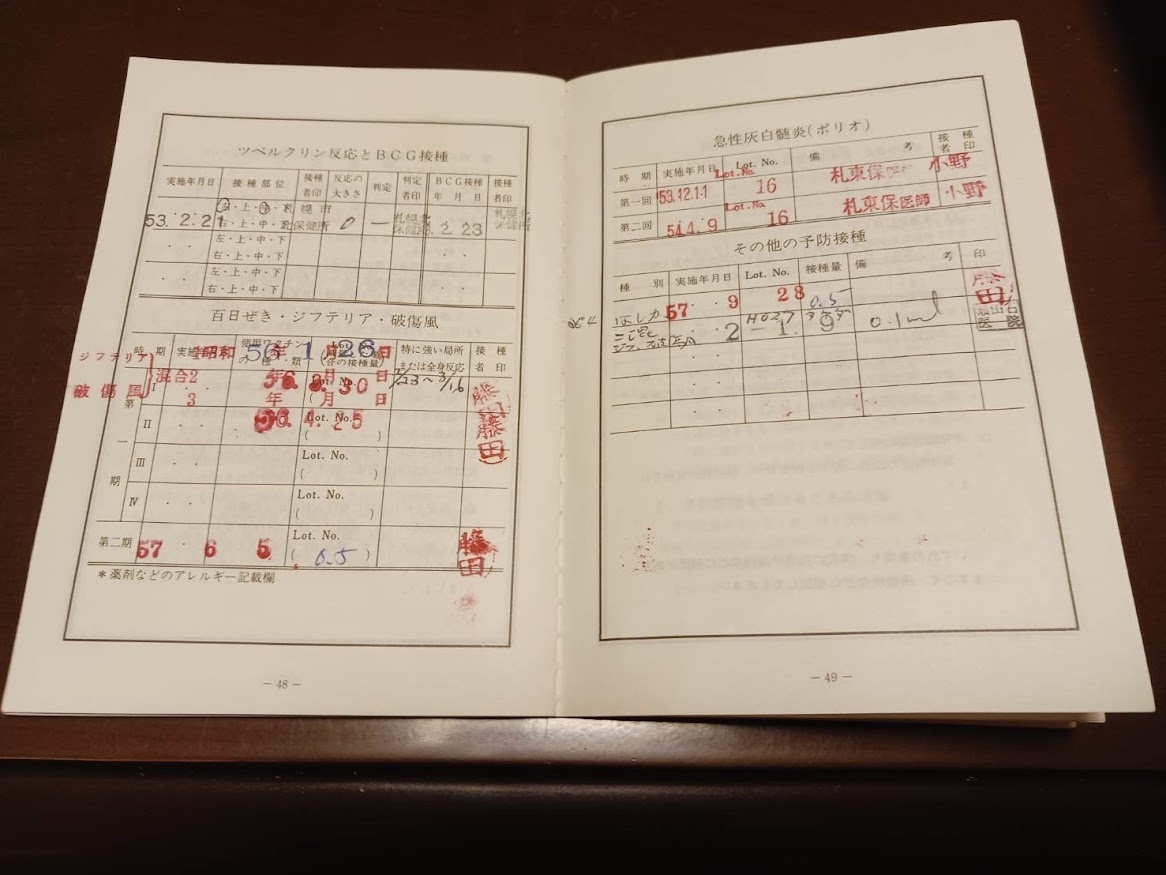 ツベルクリン反応とBCG接種
実施年月日 接種部位 接種者印 反応の大きさ 判定 判定者印 BCG接種年月日 接種者印
53.2.21 左・上・中・ 札幌市 右・上・中・下 北保健所 0 一 札幌北保健所 2.23 札幌北保健所
・ ・ 左・上・中・下 右・上・中・下 ・ ・
・ ・ 左・上・中・下 右・上・中・下 ・ ・
百日ぜき・ジフテリア・破傷風
時期 実施 昭和 56年 1月 26日 使用ワクチンの種類 特に強い局所または全身反応 接種者印
ジフテリア 破傷風 混合2 年 月 30日
第一期 I 3 年 月 日 藤田
II 56.4.25 Lot.No. ( ) 藤田
III ・ ・ Lot. No. ( )
IV ・ ・ Lot. No. ( )
第二期 57・6 5 Lot. No. ( 0.5 ) 田
*薬剤などのアレルギー記載欄
― 48 ―
急性灰白髄炎(ポリオ)
時期 実施年月日 Lot. No. 備考 接種者印
第一回 53.12.11 Lot.No. 16 札東保 小野
第二回 54.4.9 Lot.No. 16 札東保医師 小野
その他の予防接種
種別 実施年月日 Lot. No. 接種量 備考 印
はしか 57・・9 28 0.5 藤田
2-1.9 H027 0.1ml
・ ・
・ ・
・ ・
― 49 ―